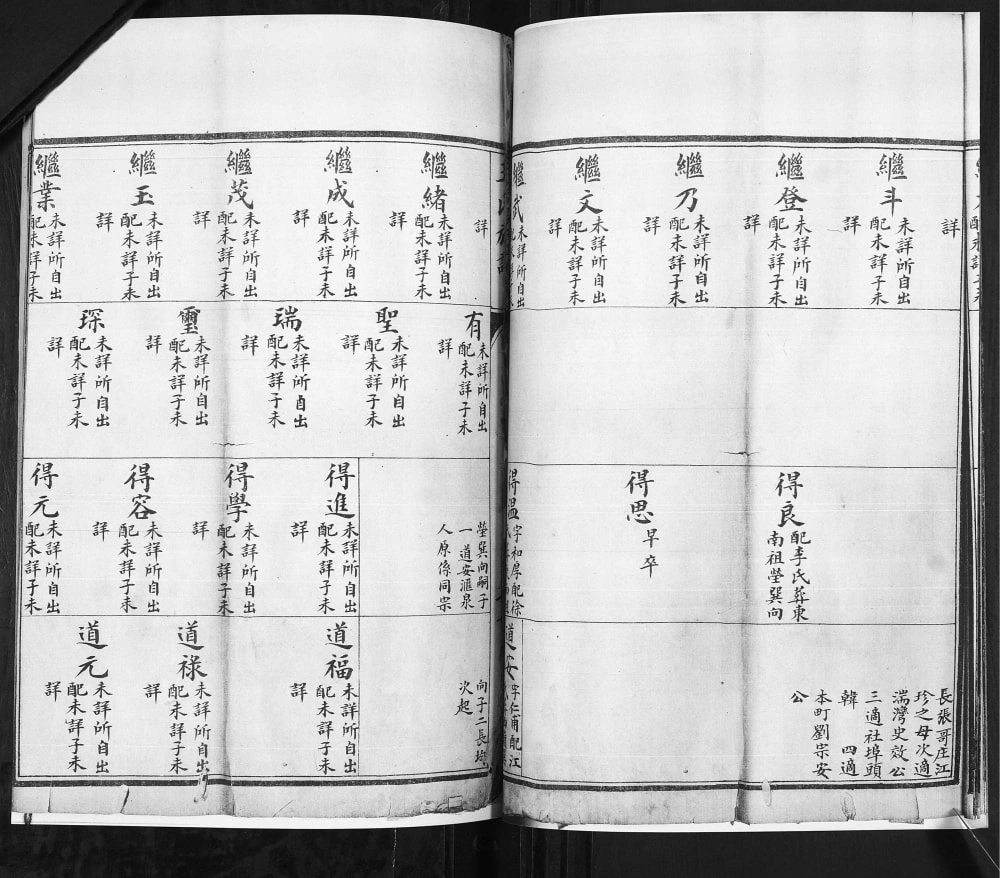 詳
繼斗
未詳所自出
配未詳子未
詳
繼登
未詳所自出
配未詳子未
詳
繼乃
未詳所自出
配未詳子未
詳
繼文
未詳所自出
配未詳子未
詳
繼武
未詳所自出
得良
配李氏葬東
南祖塋巽向
得思
早卒
得溫
字和厚配徐
長張哥庄江
珍之母次適
湍灣史效公
三適社埠頭
韓　四適
本町劉宗安
公
道安
字仁甫配江
詳
繼緒
未詳所自出
配未詳子未
詳
繼成
未詳所自出
配未詳子未
詳
繼茂
未詳所自出
配未詳子未
詳
繼玉
未詳所自出
配未詳子未
詳
繼業
未詳所自出
配未詳子未
有
未詳所自出
配未詳子未
詳
聖
未詳所自出
配未詳子未
詳
瑞
未詳所自出
配未詳子未
詳
璽
未詳所自出
配未詳子未
詳
琛
未詳所自出
配未詳子未
詳
塋巽向嗣子
一道安滙泉
人原係同宗
得進
未詳所自出
配未詳子未
詳
得學
未詳所自出
配未詳子未
詳
得容
未詳所自出
配未詳子未
詳
得元
未詳所自出
配未詳子未
向子二長均
次起
道福
未詳所自出
配未詳子未
詳
道祿
未詳所自出
配未詳子未
詳
道元
未詳所自出
配未詳子未
詳